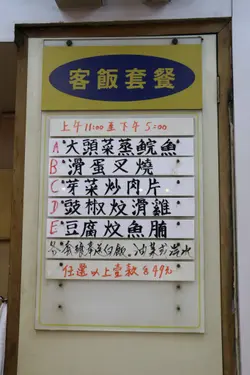 客飯套餐
上午11:00至下午5:00
A 大頭菜蒸鯇魚
B 滑蛋叉燒
C 芽菜炒肉片
D 豉椒炆滑雞
E 豆腐炆魚腩
任選以上壹款 849元